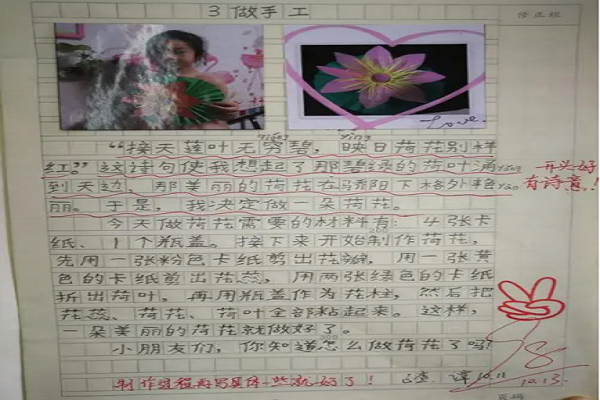 3 做手工
修正栏
Love
"接天莲叶无穷碧，映日荷花别样
红。"这诗句使我想起了那碧绿的荷叶涌
到天边、那美丽的荷花在骄阳下格外艳
丽。于是，我决定做一朵荷花。
今天做荷花需要的材料有：4张卡
纸、1个瓶盖。接下来开始制作荷花，
先用一张粉色卡纸剪出花瓣，用一张黄
色的卡纸剪出花蕊，用两张绿色的卡纸
折出荷叶，再用瓶盖作为花柱，然后把
花蕊、荷花、荷叶全部粘起来。这样，
一朵美丽的荷花就做好了。
小朋友们，你知道怎么做荷花了吗？
开头好
有诗意！
制作过程再写具体一些就好了！
98
10.11
10.13